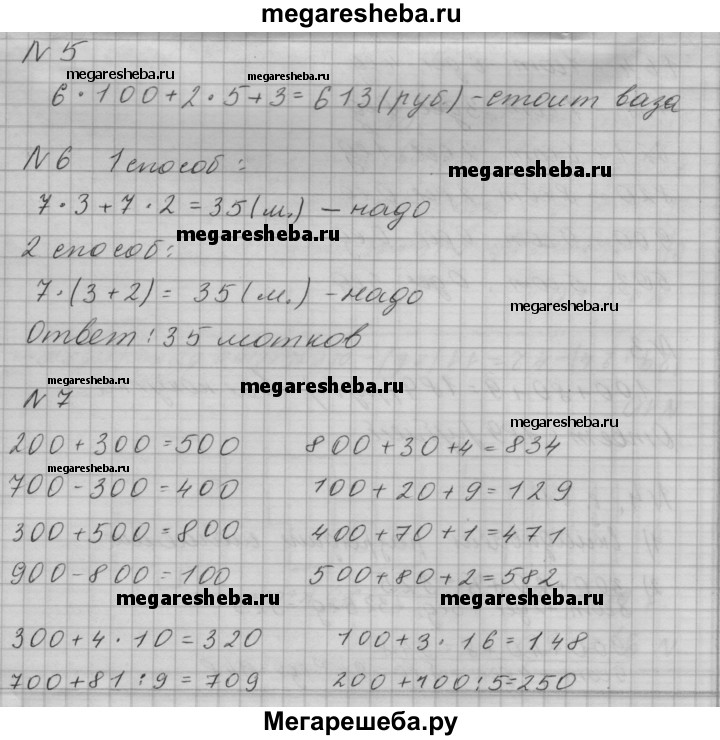 megaresheba.ru
N 5
megaresheba.ru megaresheba.ru
6 · 100 + 2 · 5 + 3 = 613 (руб.) - стоит ваза
N 6 1 способ:
megaresheba.ru
7 · 3 + 7 · 2 = 35 (м.) - надо
megaresheba.ru
2 способ:
7 · (3 + 2) = 35 (м.) - надо
megaresheba.ru
Ответ: 35 мотков
megaresheba.ru megaresheba.ru
N 7
megaresheba.ru
200 + 300 = 500 800 + 30 + 4 = 834
megaresheba.ru
700 - 300 = 400 100 + 20 + 9 = 129
300 + 500 = 800 400 + 70 + 1 = 471
900 - 800 = 100 500 + 80 + 2 = 582
megaresheba.ru megaresheba.ru
300 + 4 · 10 = 320 100 + 3 · 16 = 148
700 + 81 : 9 = 709 200 + 100 : 5 = 250
Мегарешеба.ру